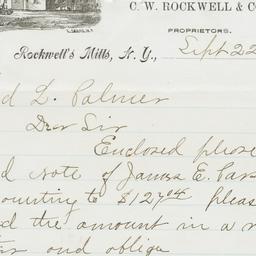 C. W. ROCKWELL & C
PROPRIETORS.
Rockwell's Mills, N. Y., Sept 22
d L. Palmer
Dear Sir
Enclosed please
d Note of James E. Par
ounting to $12
pleas
d the amount in a
and oblige